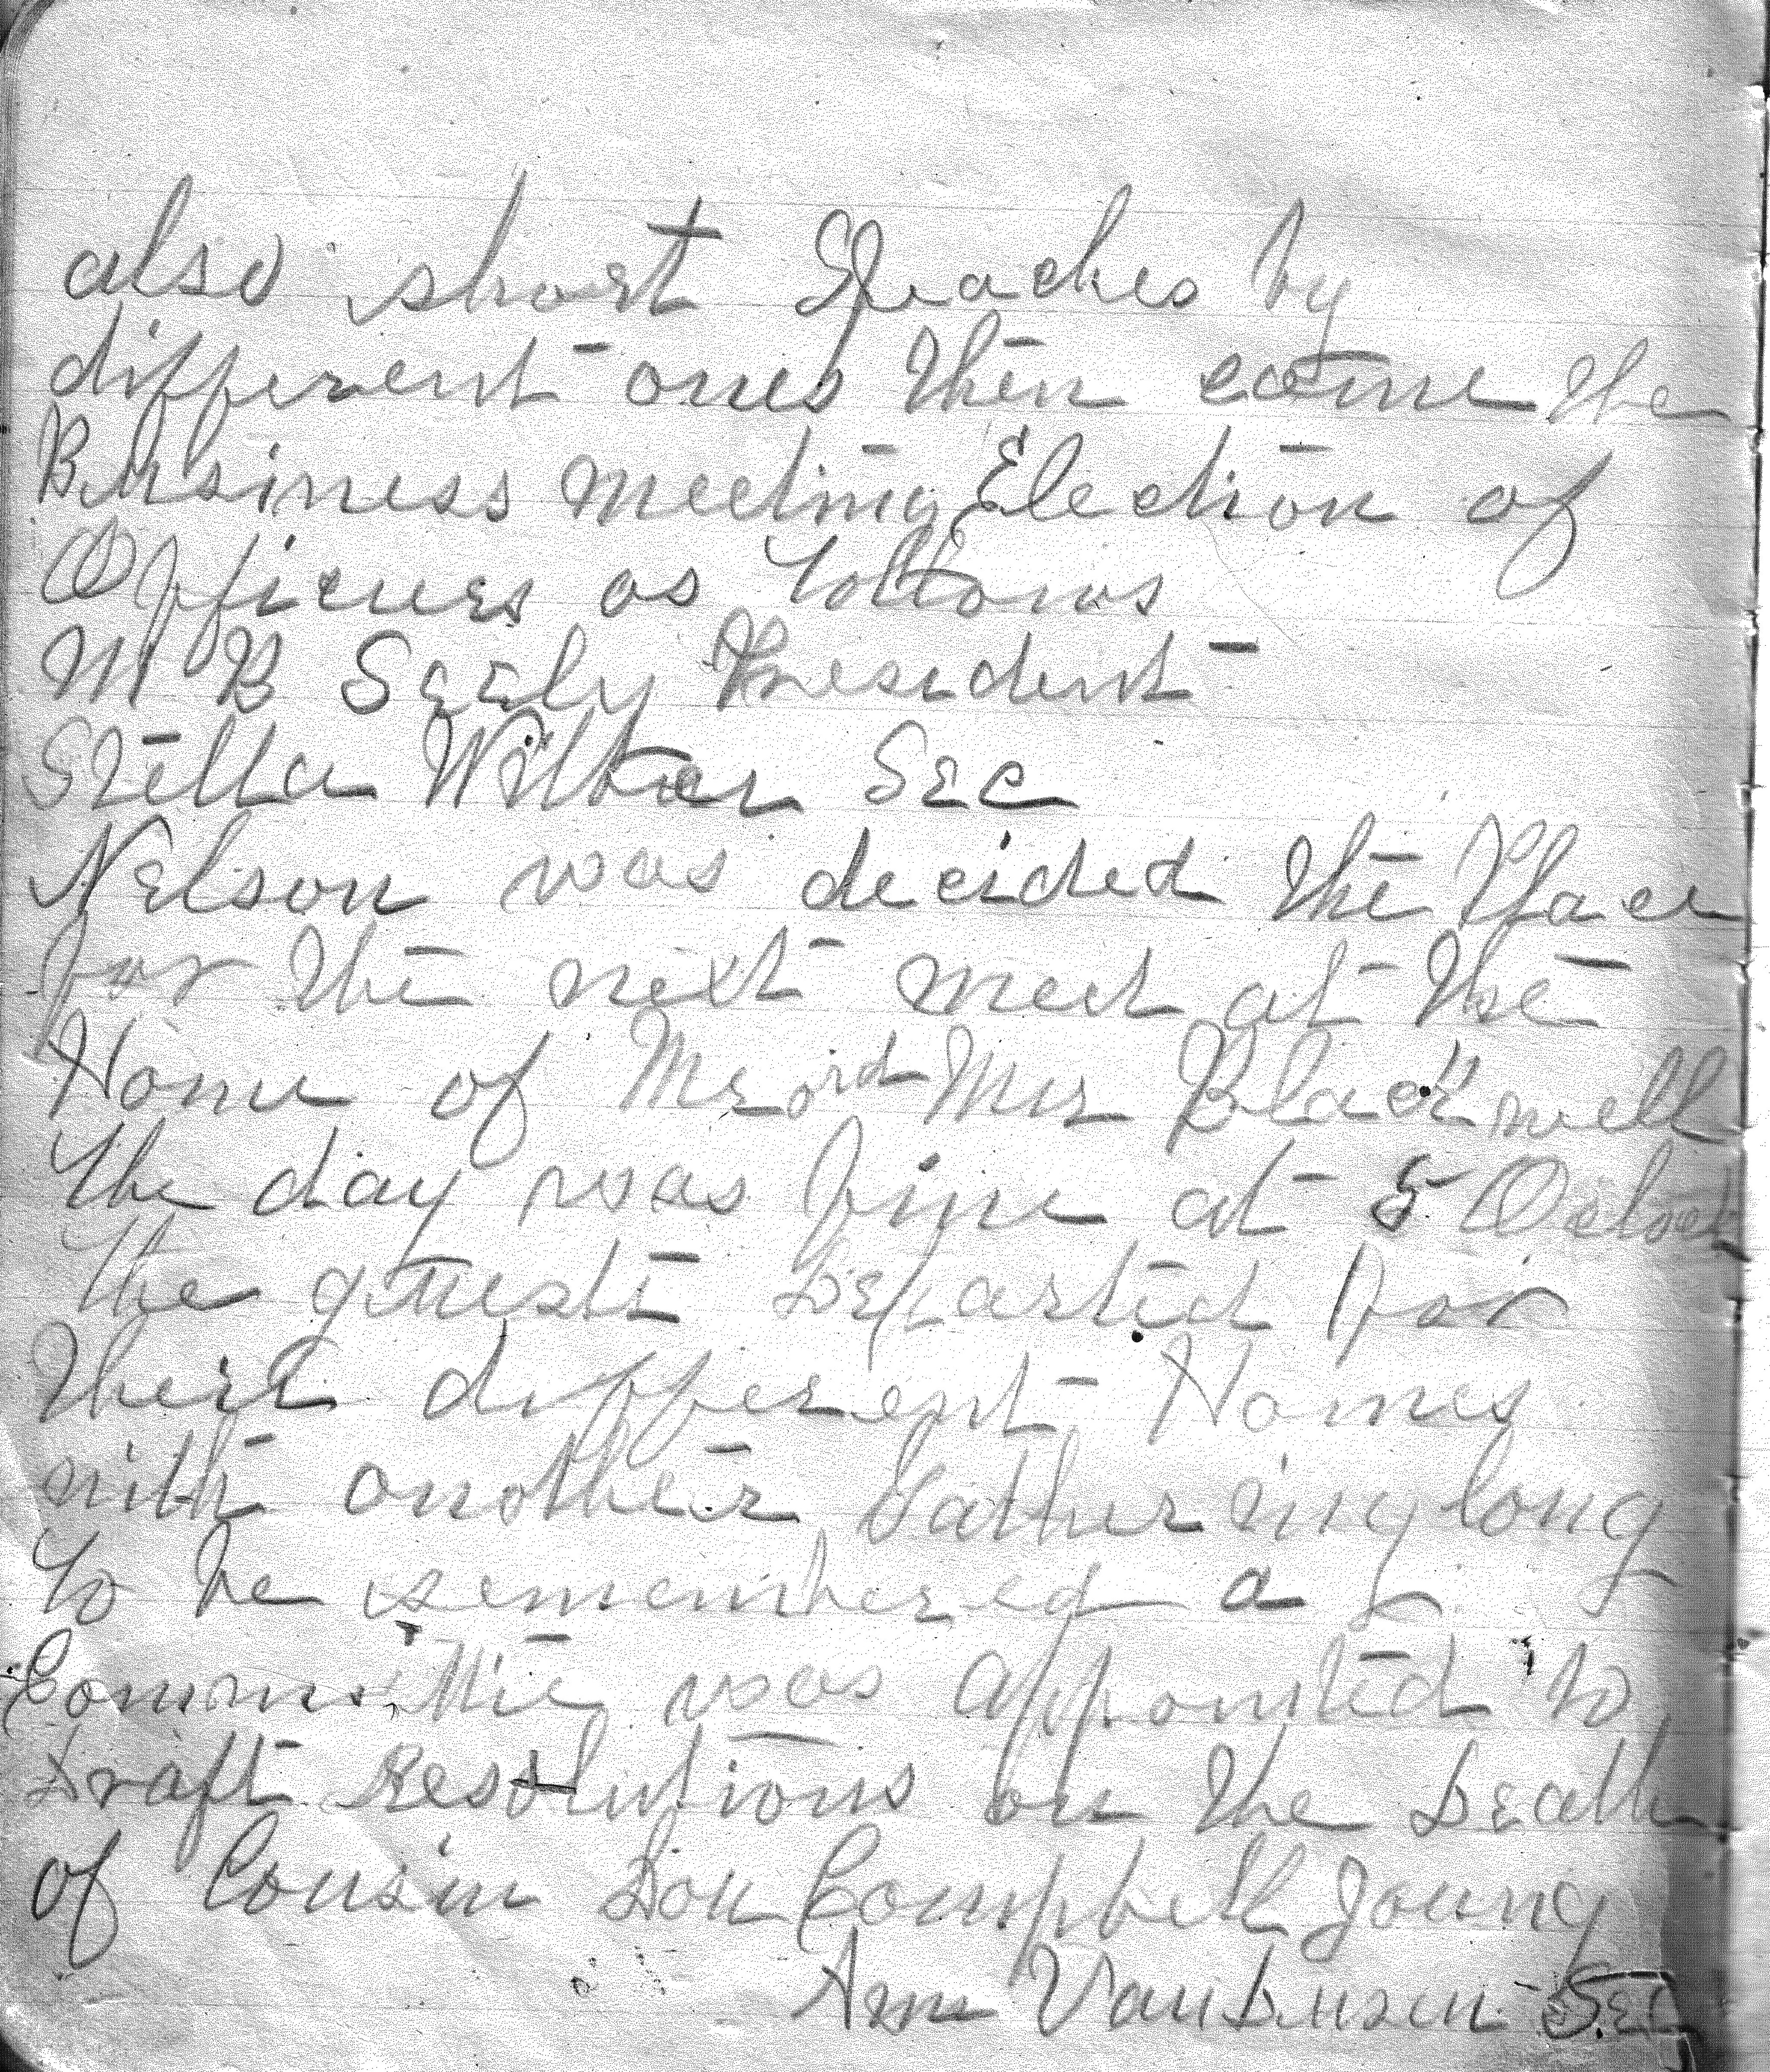 also short Speaches by
different ones then came the
Business meeting Election of
Officers as follows
M B Seely President
Stella Wilber Sec
Nelson was decided the Place
for the next meet at the
Home of Mr and Mrs Blackwell
the day was fine at 5 Oclock
the guests Departed for
their different Homes
with another Gathering long
to be remembered a
Committie was appointed to
Draft Resolutions on the Death
of Cousin Don Campbell Young
Am VanDusen Sec